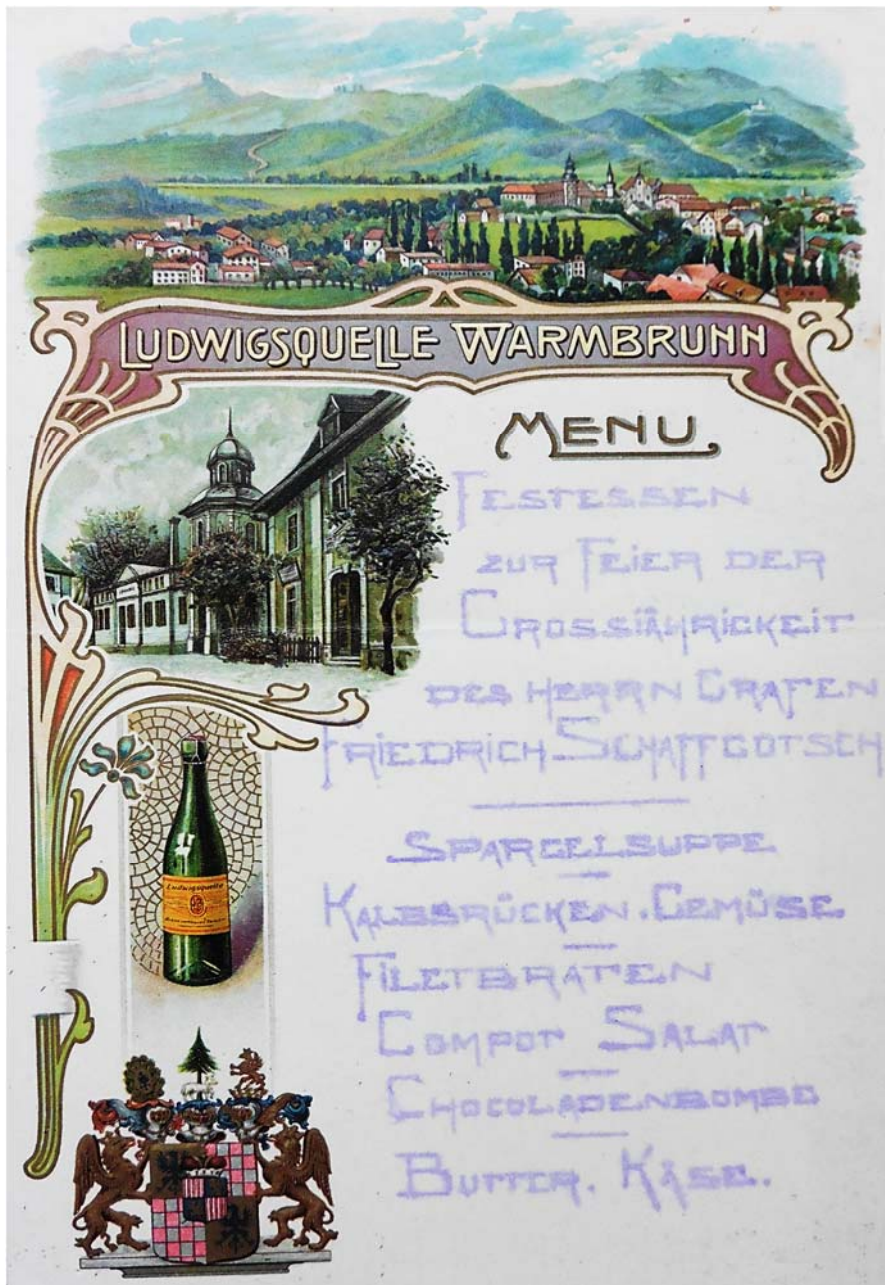 LUDWIGSQUELLE WARMBRUNN
MENU
FESTESSEN
ZUR FEIER DER
GROSSJÄHRICKEIT
DES HERRN GRAFEN
FRIEDRICH SCHAFFGOTSCH
SPARGELSUPPE
KALBSRÜCKEN. GEMÜSE
FILETBRATEN
COMPOT SALAT
CHOCOLADENBOMBE
BUTTER. KÄSE.
Ludwigsquelle